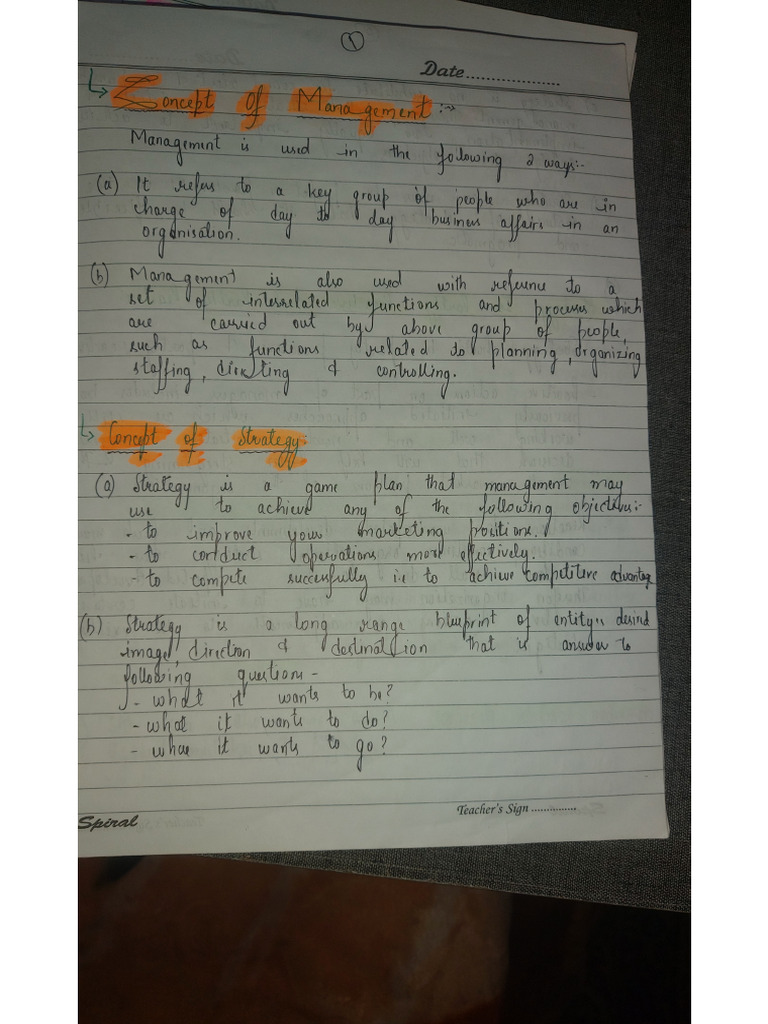 1
Date..................
Concept of Management :→
Management is used in the following 2 ways:-
(a) It refers to a key group of people who are in
charge of day to day business affairs in an
organisation.
(b) Management is also used with reference to a
set of interrelated functions and processes which
are carried out by above group of people,
such as functions related to planning, organizing
staffing, directing & controlling.
Concept of Strategy:
(a) Strategy is a game plan that management may
use to achieve any of the following objectives:-
- to improve your marketing positions.
- to conduct operations more effectively.
- to compete successfully i.e to achieve competitive advantage
(b) Strategy is a long range blueprint of entity's desired
image, direction & destination that is answer to
following questions -
- what it wants to be?
- what it wants to do?
- where it wants to go?
Teacher's Sign ...............
Spiral